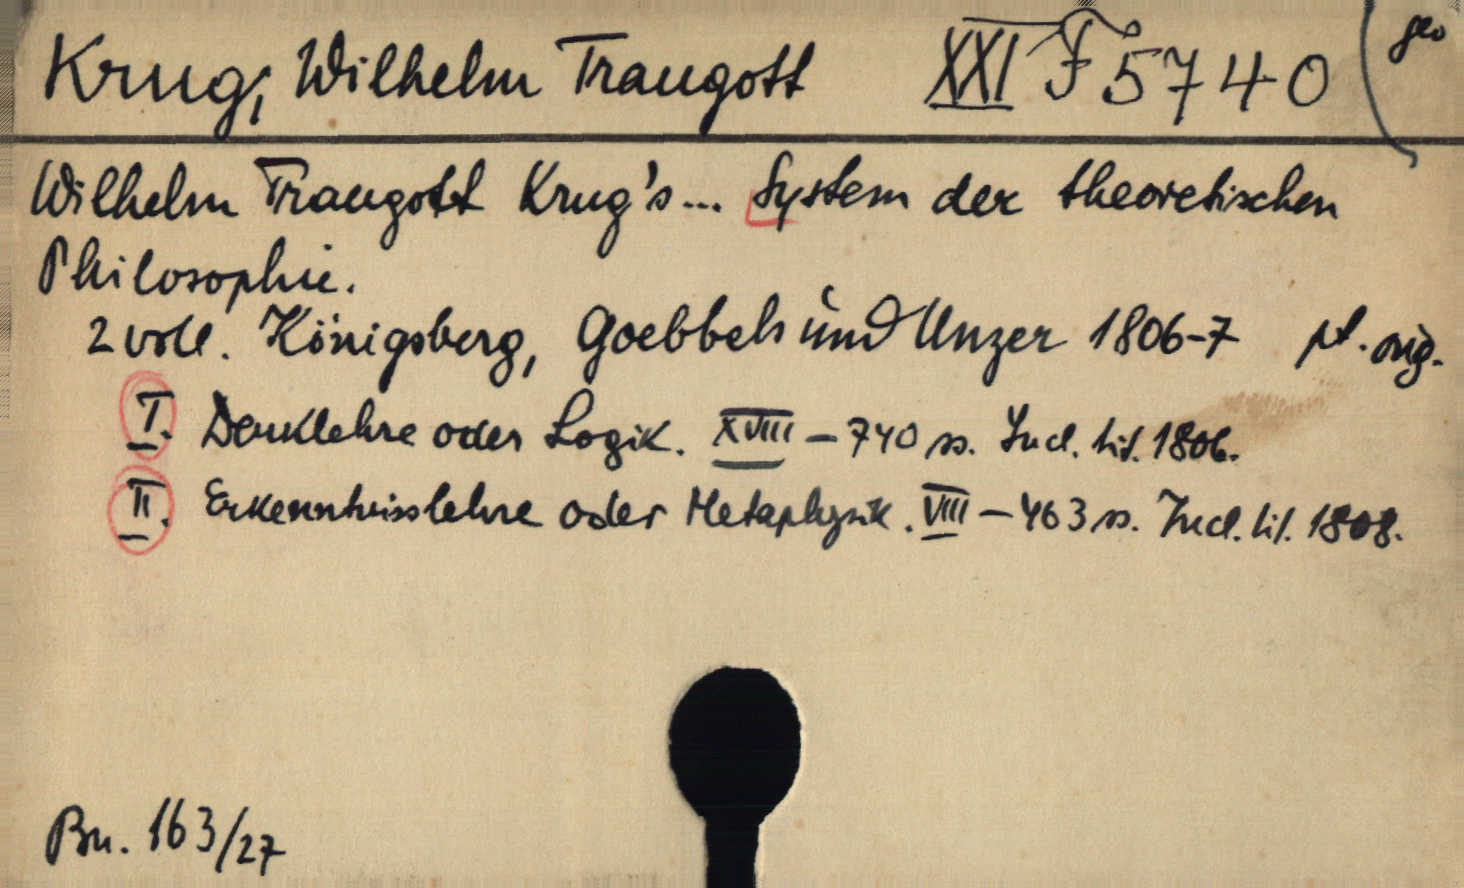 Krug, Wilhelm Traugott XXI F 5740 geo
Wilhelm Traugott Krug's ... System der theoretischen
Philosophie.
2 voll. Königsberg, Goebbels und Unzer 1806-7 pł. oryg.
I. Denklehre oder Logik. XVIII – 740 ss. Incl. lit. 1806.
II. Erkenntnisslehre oder Metaphysik. VIII – 463 ss. Incl. lit. 1808.
Bn. 163/27